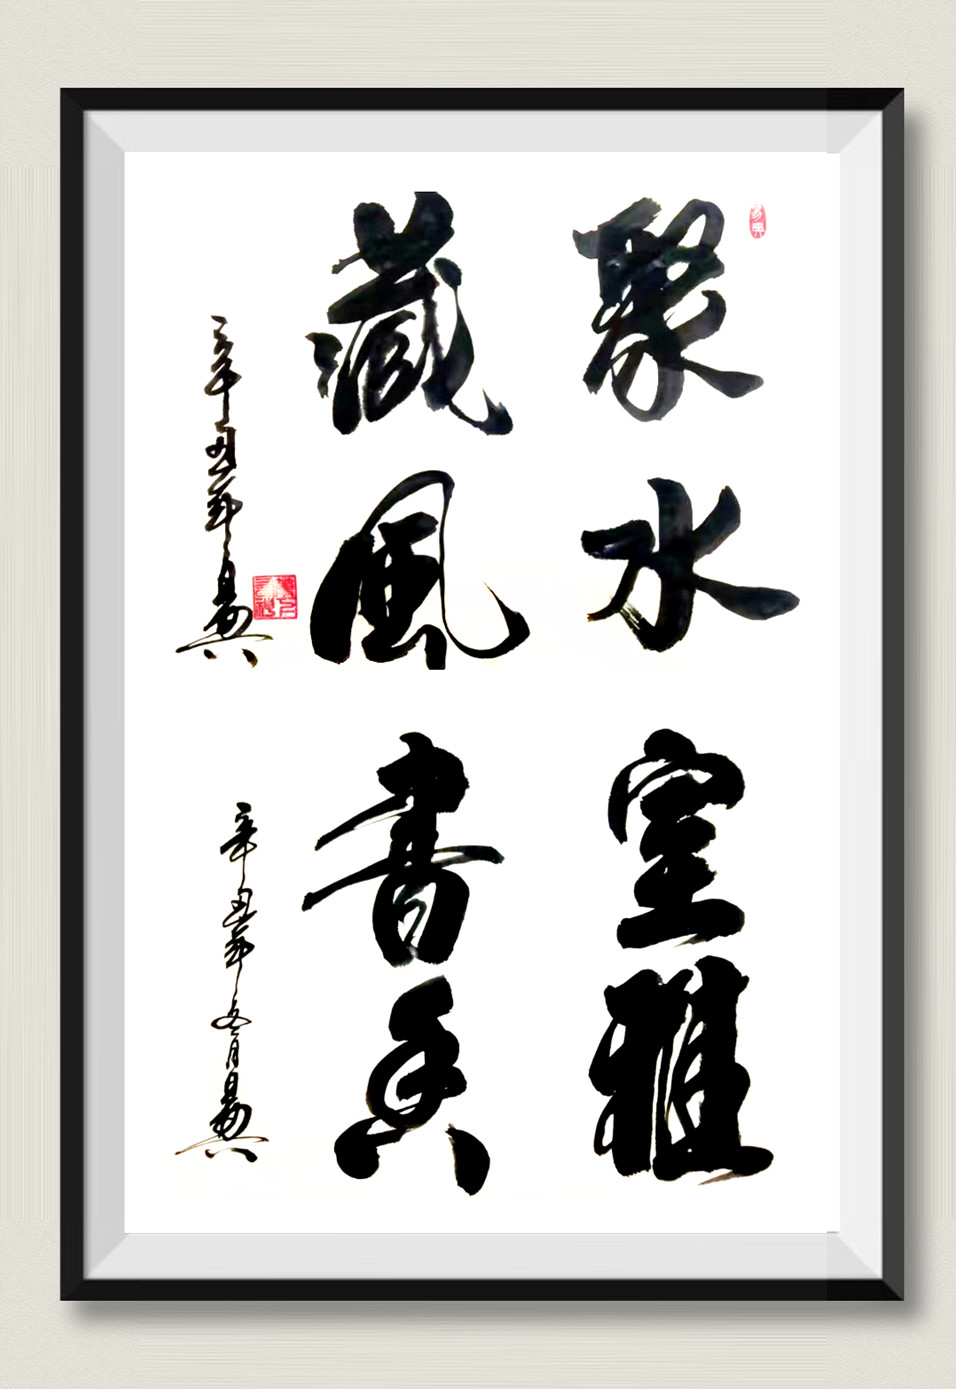 易興
聚水
藏風
辛丑年易興
室雅
書香
辛丑年五月易興